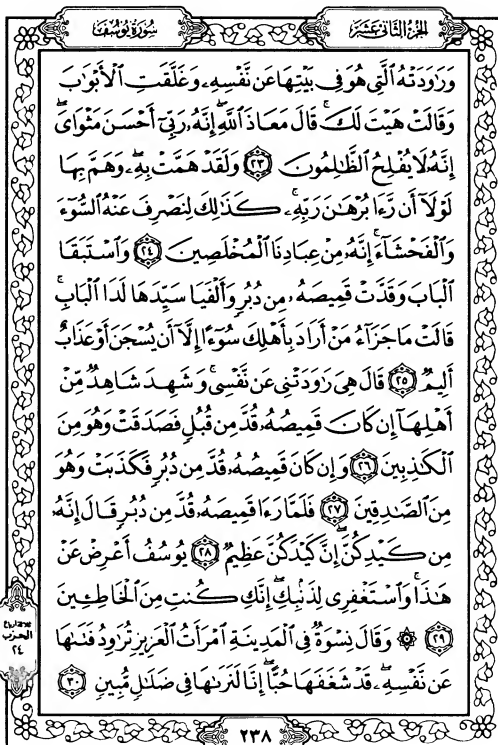 الجزء الثاني عشر
سورة يوسف
وَرَٰوَدَتْهُ ٱلَّتِي هُوَ فِي بَيْتِهَا عَن نَّفْسِهِۦ وَغَلَّقَتِ ٱلْأَبْوَٰبَ
وَقَالَتْ هَيْتَ لَكَۚ قَالَ مَعَاذَ ٱللَّهِۖ إِنَّهُۥ رَبِّيٓ أَحْسَنَ مَثْوَايَۖ
إِنَّهُۥ لَا يُفْلِحُ ٱلظَّٰلِمُونَ ٢٣ وَلَقَدْ هَمَّتْ بِهِۦۖ وَهَمَّ بِهَا
لَوْلَآ أَن رَّءَا بُرْهَٰنَ رَبِّهِۦۚ كَذَٰلِكَ لِنَصْرِفَ عَنْهُ ٱلسُّوٓءَ
وَٱلْفَحْشَآءَۚ إِنَّهُۥ مِنْ عِبَادِنَا ٱلْمُخْلَصِينَ ٢٤ وَٱسْتَبَقَا
ٱلْبَابَ وَقَدَّتْ قَمِيصَهُۥ مِن دُبُرٍ وَأَلْفَيَا سَيِّدَهَا لَدَا ٱلْبَابِۚ
قَالَتْ مَا جَزَآءُ مَنْ أَرَادَ بِأَهْلِكَ سُوٓءًا إِلَّآ أَن يُسْجَنَ أَوْ عَذَابٌ
أَلِيمٌ ٢٥ قَالَ هِيَ رَٰوَدَتْنِي عَن نَّفْسِيۚ وَشَهِدَ شَاهِدٌ مِّنْ
أَهْلِهَآ إِن كَانَ قَمِيصُهُۥ قُدَّ مِن قُبُلٍ فَصَدَقَتْ وَهُوَ مِنَ
ٱلْكَٰذِبِينَ ٢٦ وَإِن كَانَ قَمِيصُهُۥ قُدَّ مِن دُبُرٍ فَكَذَبَتْ وَهُوَ
مِنَ ٱلصَّٰدِقِينَ ٢٧ فَلَمَّا رَءَا قَمِيصَهُۥ قُدَّ مِن دُبُرٍ قَالَ إِنَّهُۥ
مِن كَيْدِكُنَّۖ إِنَّ كَيْدَكُنَّ عَظِيمٌ ٢٨ يُوسُفُ أَعْرِضْ عَنْ
هَٰذَاۚ وَٱسْتَغْفِرِي لِذَنۢبِكِۖ إِنَّكِ كُنتِ مِنَ ٱلْخَاطِـِٔينَ
٢٩ ۞ وَقَالَ نِسْوَةٌ فِي ٱلْمَدِينَةِ ٱمْرَأَتُ ٱلْعَزِيزِ تُرَٰوِدُ فَتَىٰهَا
عَن نَّفْسِهِۦۖ قَدْ شَغَفَهَا حُبًّاۖ إِنَّا لَنَرَىٰهَا فِي ضَلَٰلٍ مُّبِينٍ ٣٠
الحزب
٢٤
٢٣٨